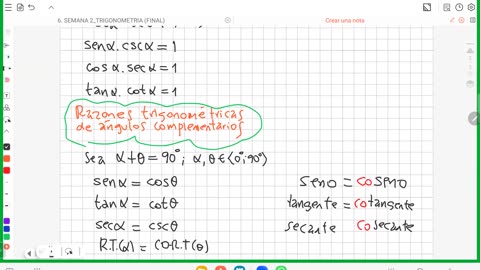 6. SEMANA 2_TRIGONOMETRIA (FINAL)
Crear una nota
senα.cscα=1
cosα.secα=1
tanα.cotα=1
Razones trigonométricas
de ángulos complementarios
Sea α+θ=90°; α,θ∈<0°;90°>
senα = cosθ
tanα = cotθ
secα = cscθ
R.T.(α) = CO-R.T(θ)
seno = coseno
tangente = cotangente
secante cosecante